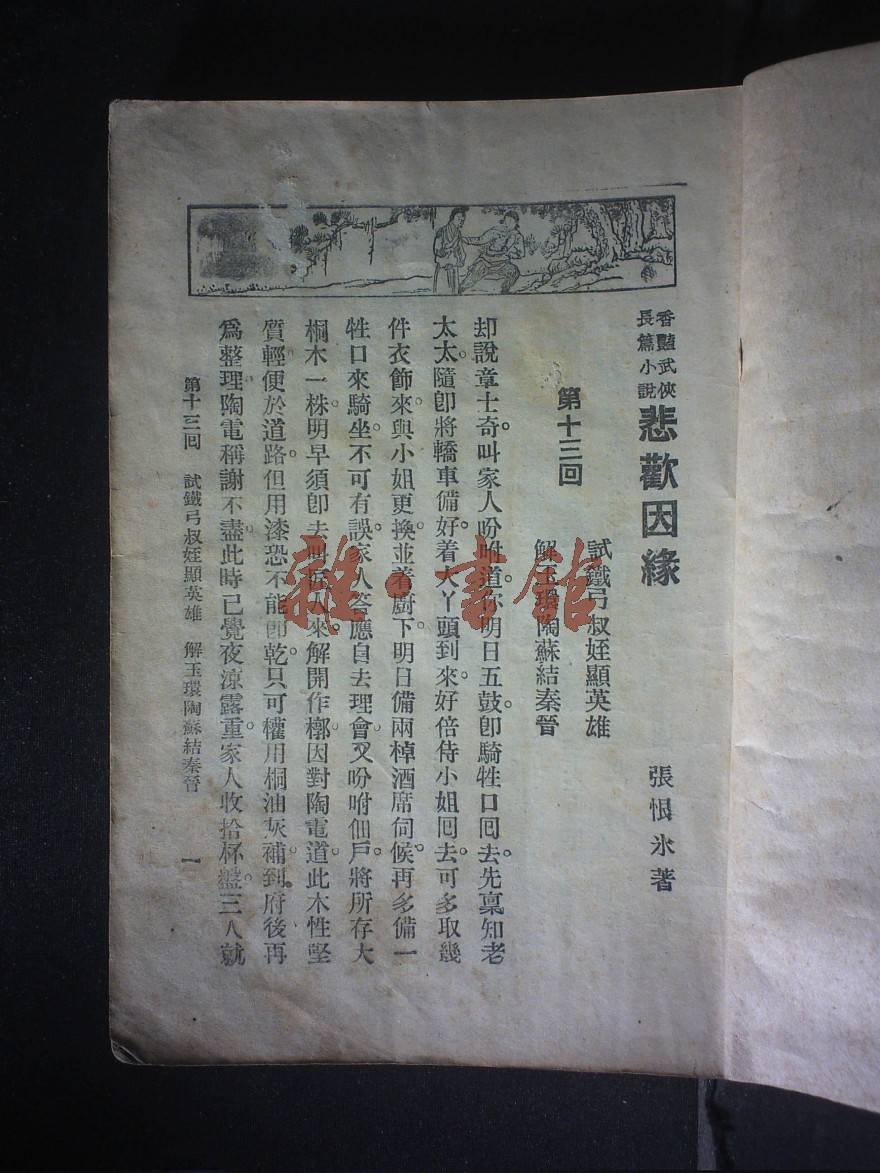 香豔武俠
長篇小說
悲歡因緣
張恨水著
第十三回
試鐵弓叔姪顯英雄
解玉環陶蘇結秦晉
却說章士奇叫家人吩咐道你明日五鼓。卽騎牲口囘去。先稟知老
太太。隨卽將轎車備好。着大丫頭到來。好倍侍小姐囘去。可多取幾
件衣飾來。與小姐更換。並着廚下。明日備兩棹酒席伺候。再多備一
牲口來騎坐。不可有誤。家人答應自去理會。又吩咐佃戶。將所存大
桐木一株。明早須卽去叫匠人來。解開作槨。因對陶電道。此木性堅
質輕。便於道路。但用漆恐不能卽乾。只可權用桐油灰補。到府後再
爲整理。陶電稱謝不盡。此時已覺夜涼露重。家人收拾杯盤。三人就
第十三回 試鐵弓叔姪顯英雄 解玉環陶蘇結秦晉 一
雜·書館